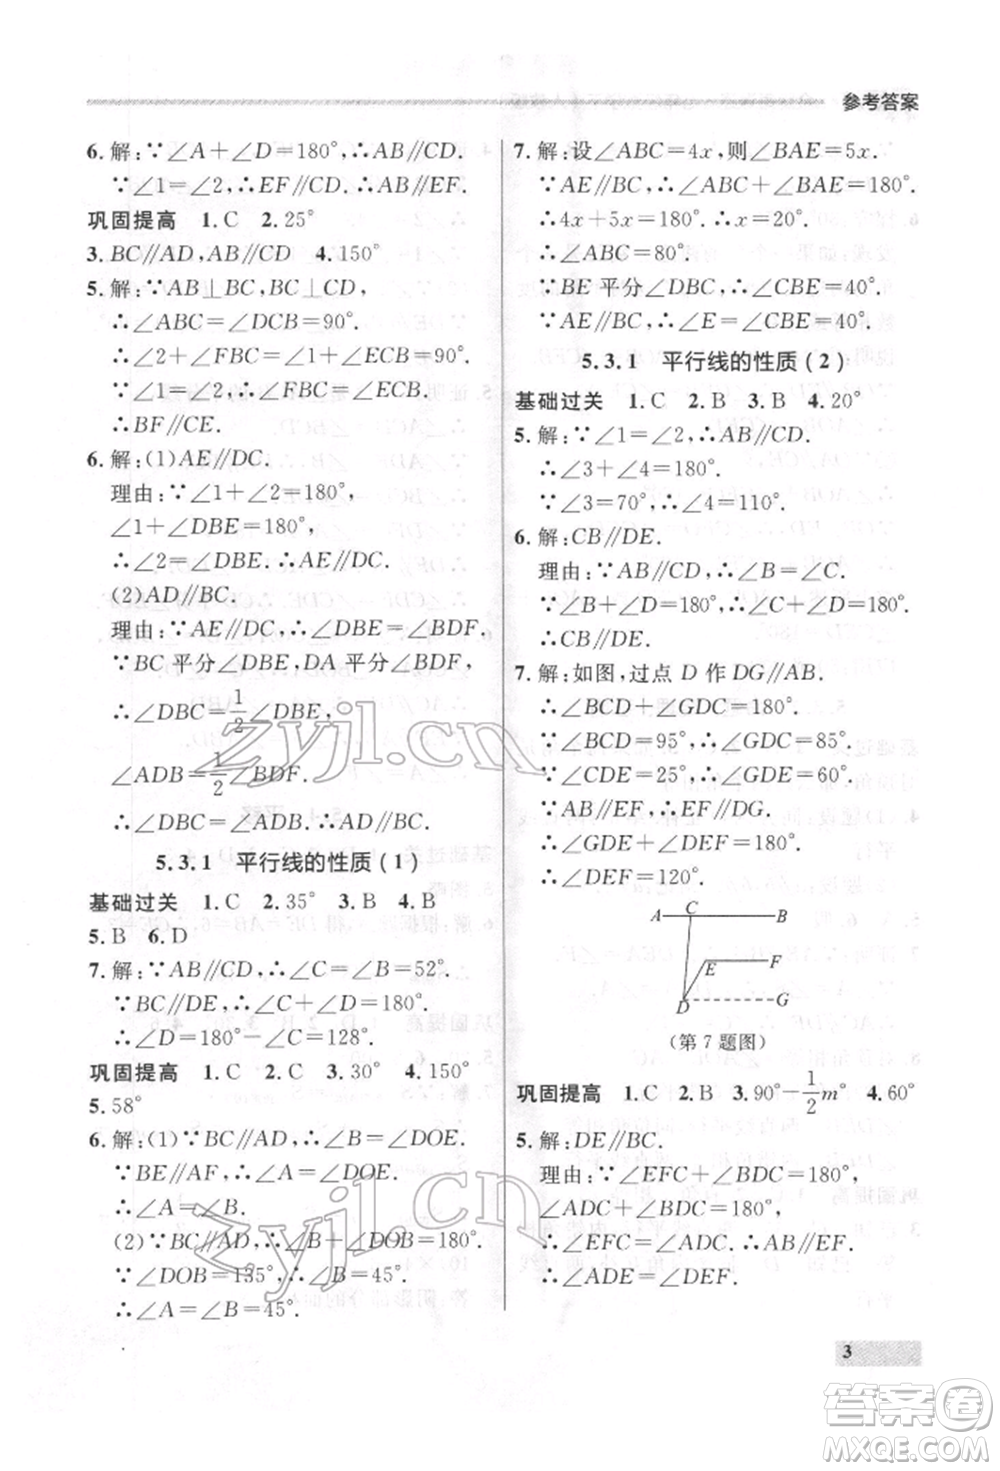 参考答案
6.解:∵∠A+∠D=180°,∴AB∥CD.
∵∠1=∠2,∴EF∥CD.∴AB∥EF.
巩固提高 1.C 2.25°
3.BC∥AD,AB∥CD 4.150°
5.解:∵AB⊥BC,BC⊥CD,
∴∠ABC=∠DCB=90°.
∴∠2+∠FBC=∠1+∠ECB=90°.
∵∠1=∠2,∴∠FBC=∠ECB.
∴BF∥CE.
6.解:(1)AE∥DC.
理由:∵∠1+∠2=180°,
∠1+∠DBE=180°,
∴∠2=∠DBE.∴AE∥DC.
(2)AD∥BC.
理由:∵AE∥DC,∴∠DBE=∠BDF,
∵BC平分∠DBE,DA平分∠BDF,
∴∠DBC=1/2∠DBE,
∠ADB=1/2∠BDF.
∴∠DBC=∠ADB.∴AD∥BC.
5.3.1 平行线的性质(1)
基础过关 1.C 2.35° 3.B 4.B
5.B 6.D
7.解:∵AB∥CD,∴∠C=∠B=52°.
∵BC∥DE,∴∠C+∠D=180°.
∴∠D=180°-∠C=128°.
巩固提高 1.C 2.C 3.30° 4.150°
5.58°
6.解:(1)∵BC∥AD,∴∠B=∠DOE.
∵BE∥AF,∴∠A=∠DOE.
∴∠A=∠B.
(2)∵BC∥AD,∴∠B+∠DOB=180°.
∵∠DOB=135°,∴∠B=45°.
∴∠A=∠B=45°.
7.解:设∠ABC=4x,则∠BAE=5x.
∵AE∥BC,∴∠ABC+∠BAE=180°.
∴4x+5x=180°.∴x=20°.
∴∠ABC=80°.
∵BE平分∠DBC,∴∠CBE=40°.
∵AE∥BC,∴∠E=∠CBE=40°.
5.3.1 平行线的性质(2)
基础过关 1.C 2.B 3.B 4.20°
5.解:∵∠1=∠2,∴AB∥CD.
∴∠3+∠4=180°.
∵∠3=70°,∴∠4=110°.
6.解:CB∥DE.
理由:∵AB∥CD,∴∠B=∠C.
∵∠B+∠D=180°,∴∠C+∠D=180°.
∴CB∥DE.
7.解:如图,过点D作DG∥AB.
∴∠BCD+∠GDC=180°.
∵∠BCD=95°,∴∠GDC=85°.
∵∠CDE=25°,∴∠GDE=60°.
∵AB∥EF,∴EF∥DG.
∴∠DEF+∠GDE=180°.
∴∠DEF=120°.
A C B
E F
D G
(第7题图)
巩固提高 1.C 2.B 3.90°-1/2m° 4.60°
5.解:DE∥BC.
理由:∵∠EFC+∠BDC=180°,
∠ADC+∠BDC=180°,
∴∠EFC=∠ADC.∴AD∥EF.
∴∠ADE=∠DEF.
3
zyjl.cn
zyjl.cn
答案圈
MXQE.COM